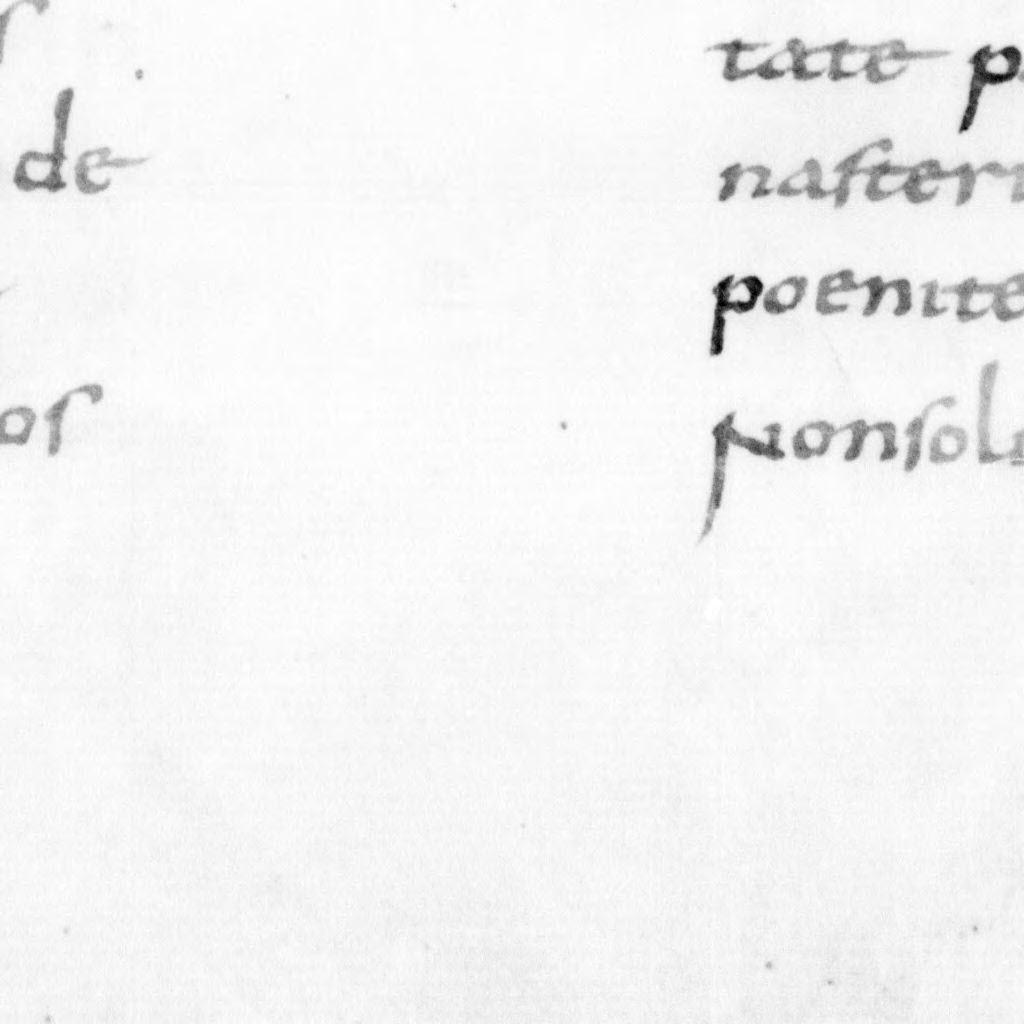 de
os
tate p
nasteri
poenite
Nonsolu